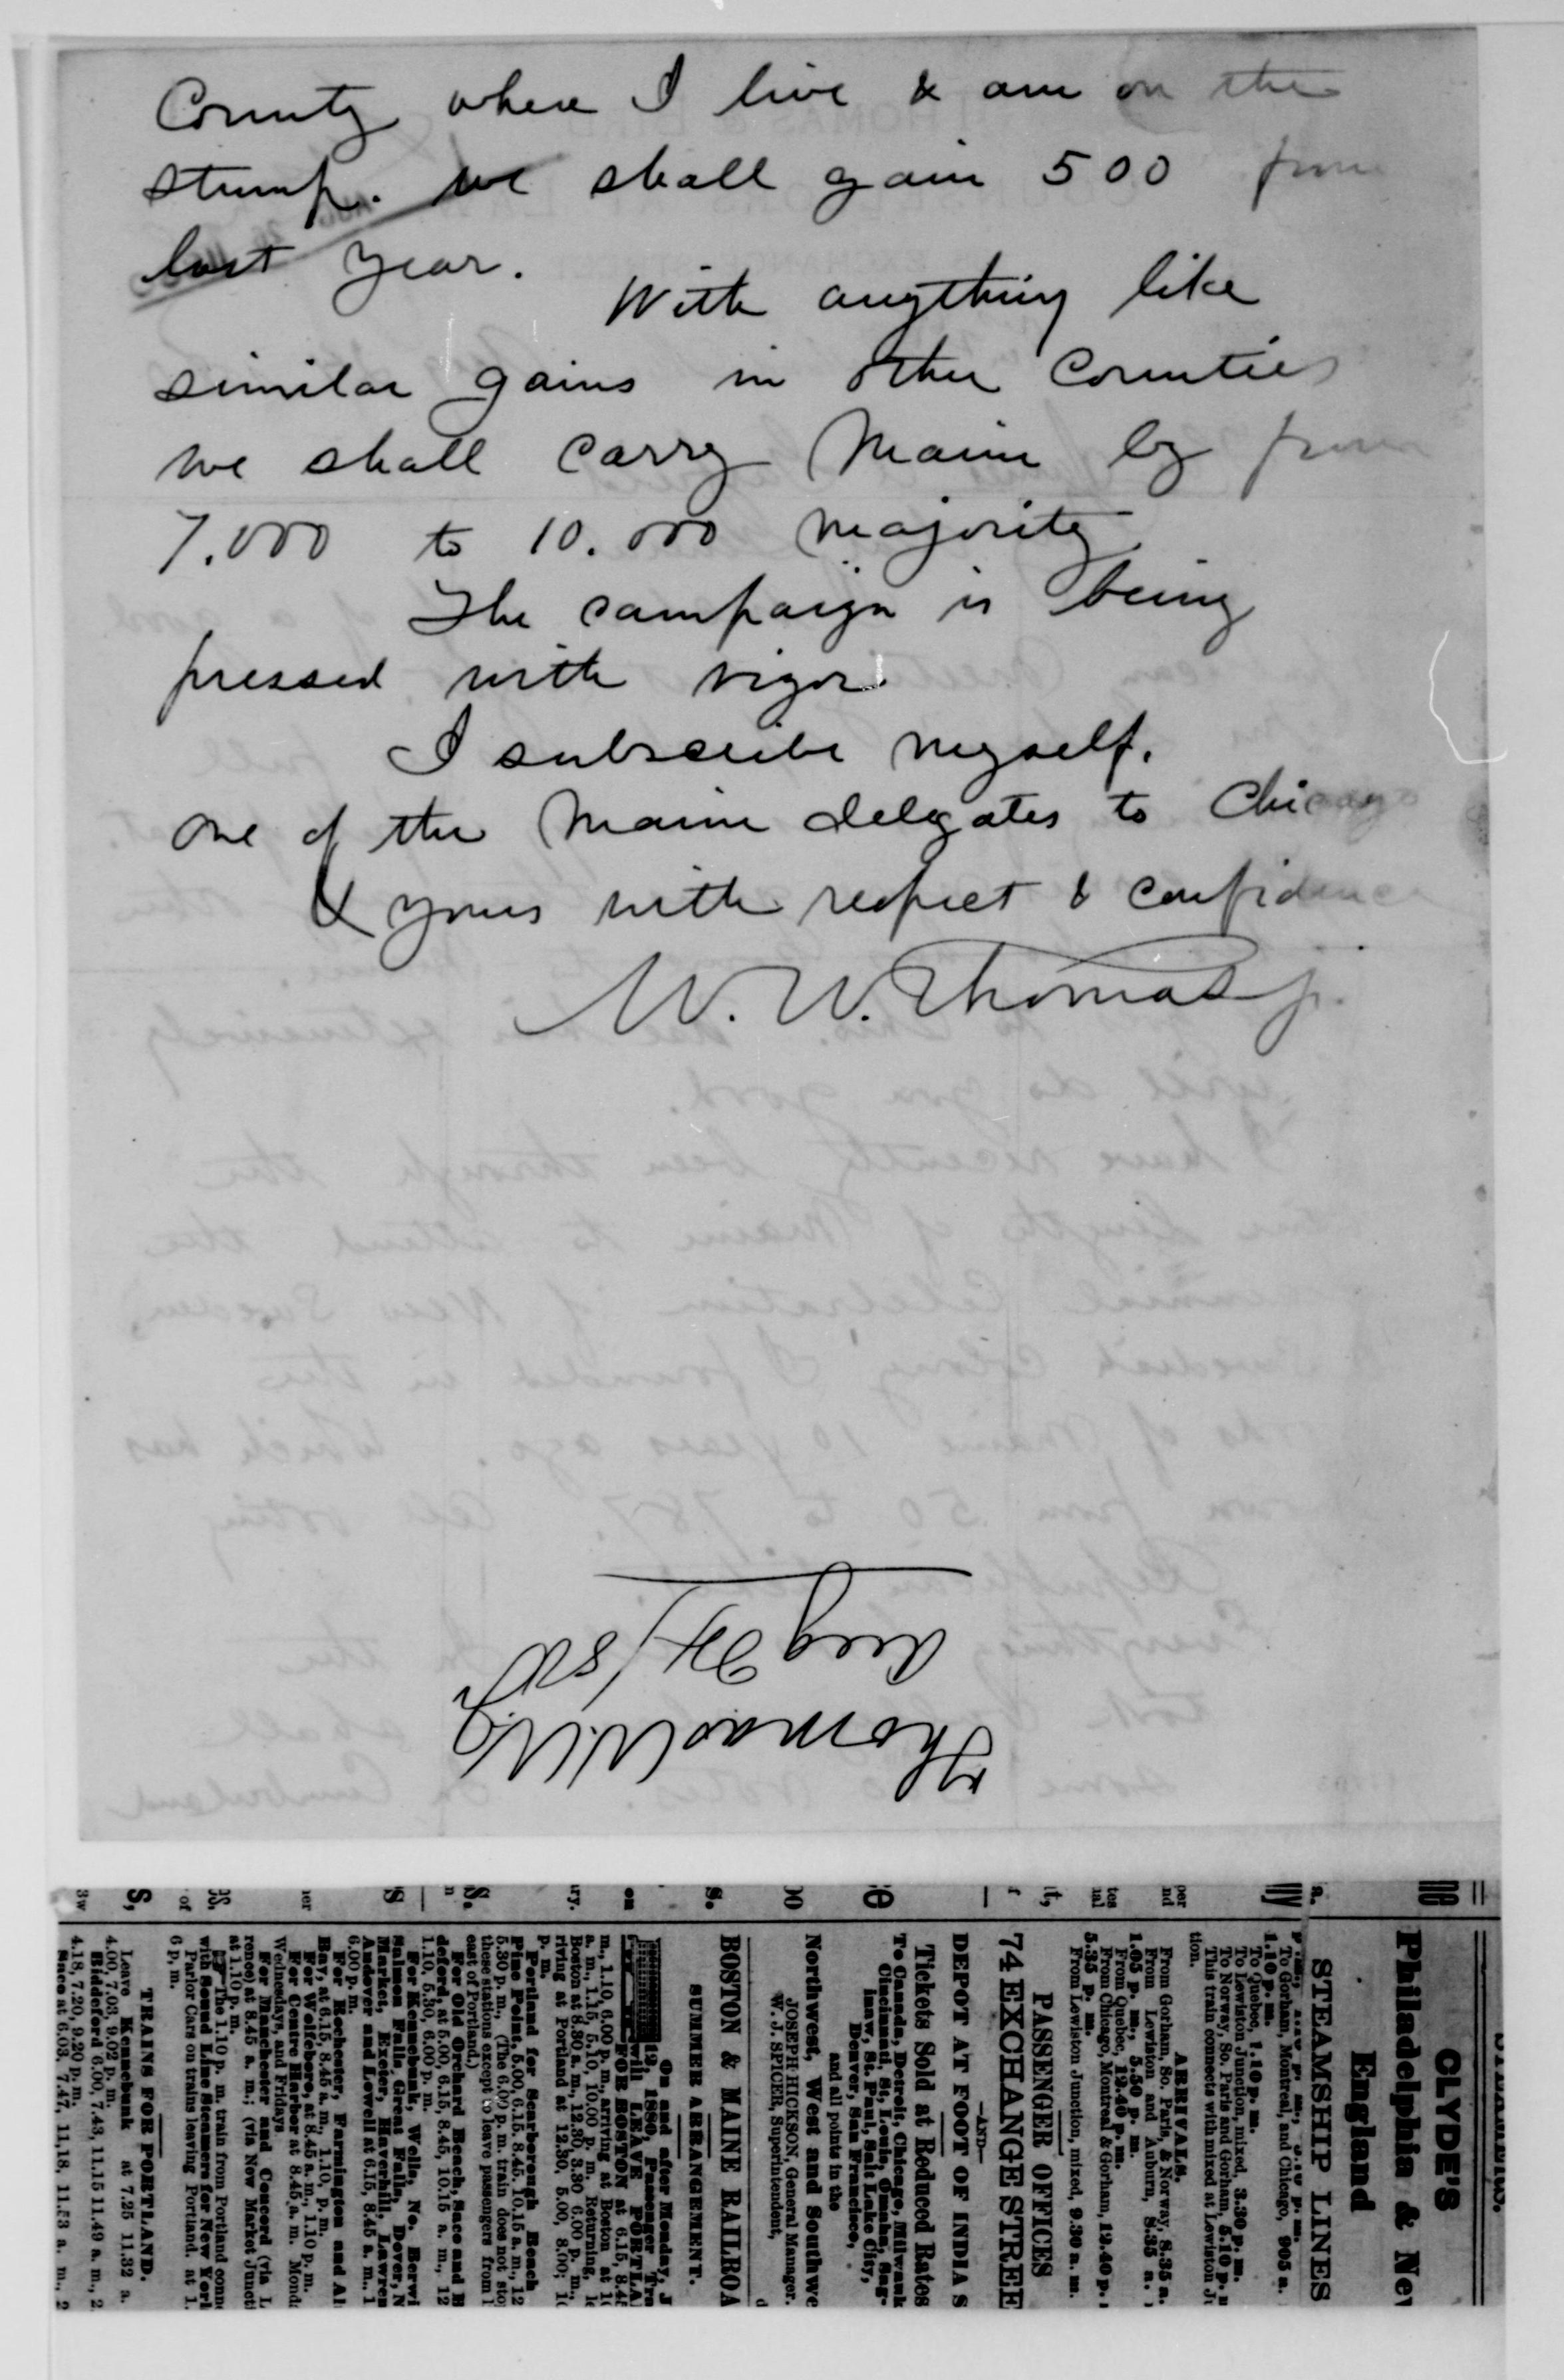 County where I live & am on the
stump. we shall gain 500 from
last year.
With anything like
similar gains in other Counties
we shall carry Maine by from
7.000 to 10.000 majority.
The campaign is being
pressed with vigor.
I subscribe myself.
one of the Maine delegates to Chicago
& yours with respect & confidence
W. W. Thomas jr.
Thomas W.W. jr
Aug 24/80
CLYDE'S
Philadelphia & New
England
STEAMSHIP LINES
To Gorham, Montreal, and Chicago, 905 a.
1.10 p. m.
To Quebec, 1.10 p. m.
To Lewiston Junction, mixed, 3.30 p. m.
To Norway, So. Paris and Gorham, 5.10 p. m
This train connects with mixed at Lewiston Ju
tion.
ARRIVALS.
From Gorham, So. Paris, & Norway, 8.35 a.
From Lewiston and Auburn, 8.35 a.
1.05 p. m., 5.50 p. m.
From Quebec, 12.40 p. m.
From Chicago, Montreal & Gorham, 12.40 p.
5.35 p. m.
From Lewiston Junction, mixed, 9.30 a. m.
PASSENGER OFFICES
74 EXCHANGE STREE
—AND—
DEPOT AT FOOT OF INDIA S
Tickets Sold at Reduced Rates
To Canada, Detroit, Chicago, Milwauk
Cincinnati, St. Louis, Omaha, Sag-
inaw, St. Paul, Salt Lake City,
Denver, San Francisco,
and all points in the
Northwest, West and Southwe
JOSEPH HICKSON, General Manager.
W. J. SPICER, Superintendent,
BOSTON & MAINE RAILROA
SUMMER ARRANGEMENT.
On and after Monday, J
1880, Passenger Tra
will LEAVE PORTLA
FOR BOSTON at 6.15, 8.45
m., 1.10, 6.00 p. m., arriving at Boston at 10
a. m., 1.15, 5.10, 10.00 p. m. Returning, le
Boston at 8.30 a. m., 12.30, 3.30 6.00 p. m.,
riving at Portland at 12.30, 5.00, 8.00; 10
p. m.
Portland for Scarborough Beach
Pine Point, 5.00, 6.15, 8.45, 10.15 a. m., 12
5.30 p. m., (The 6.00 p. m. train does not sto
these stations except to leave passengers from
east of Portland.)
For Old Orchard Beach, Saco and B
deford, at 5.00, 6.15, 8.45, 10.15 a. m., 12
1.10, 5.30, 6.00 p. m.
For Kennebunk, Wells, No. Berwi
Salmon Falls, Great Falls, Dover, N
Market, Exeter, Haverhill, Lawren
Andover and Lowell at 6.15, 8.45 a. m., 1
6.00 p. m.
For Rochester, Farmington and Al
Bay, at 6.15, 8.45 a. m., 1.10, p. m.
For Wolfeboro, at 8.45 a. m., 1.10 p. m.
For Centre Harbor at 8.45 a. m. Monda
Wednesdays, and Fridays
For Manchester and Concord (via L
rence) at 8.45 a. m.; (via New Market Juncti
at 1.10 p. m.
The 1.10 p. m. train from Portland conne
with Sound Line Steamers for New York
Parlor Cars on trains leaving Portland. at 1.
6 p. m.
TRAINS FOR PORTLAND.
Leave Kennebunk at 7.25 11.32 a.
4.00, 7.03, 9.02 p. m.
Biddeford 6.00, 7.43, 11.15 11.49 a. m., 2.
4.18, 7.20, 9.20 p. m.
Saco at 6.03, 7.47, 11,18, 11.53 a. m., 2